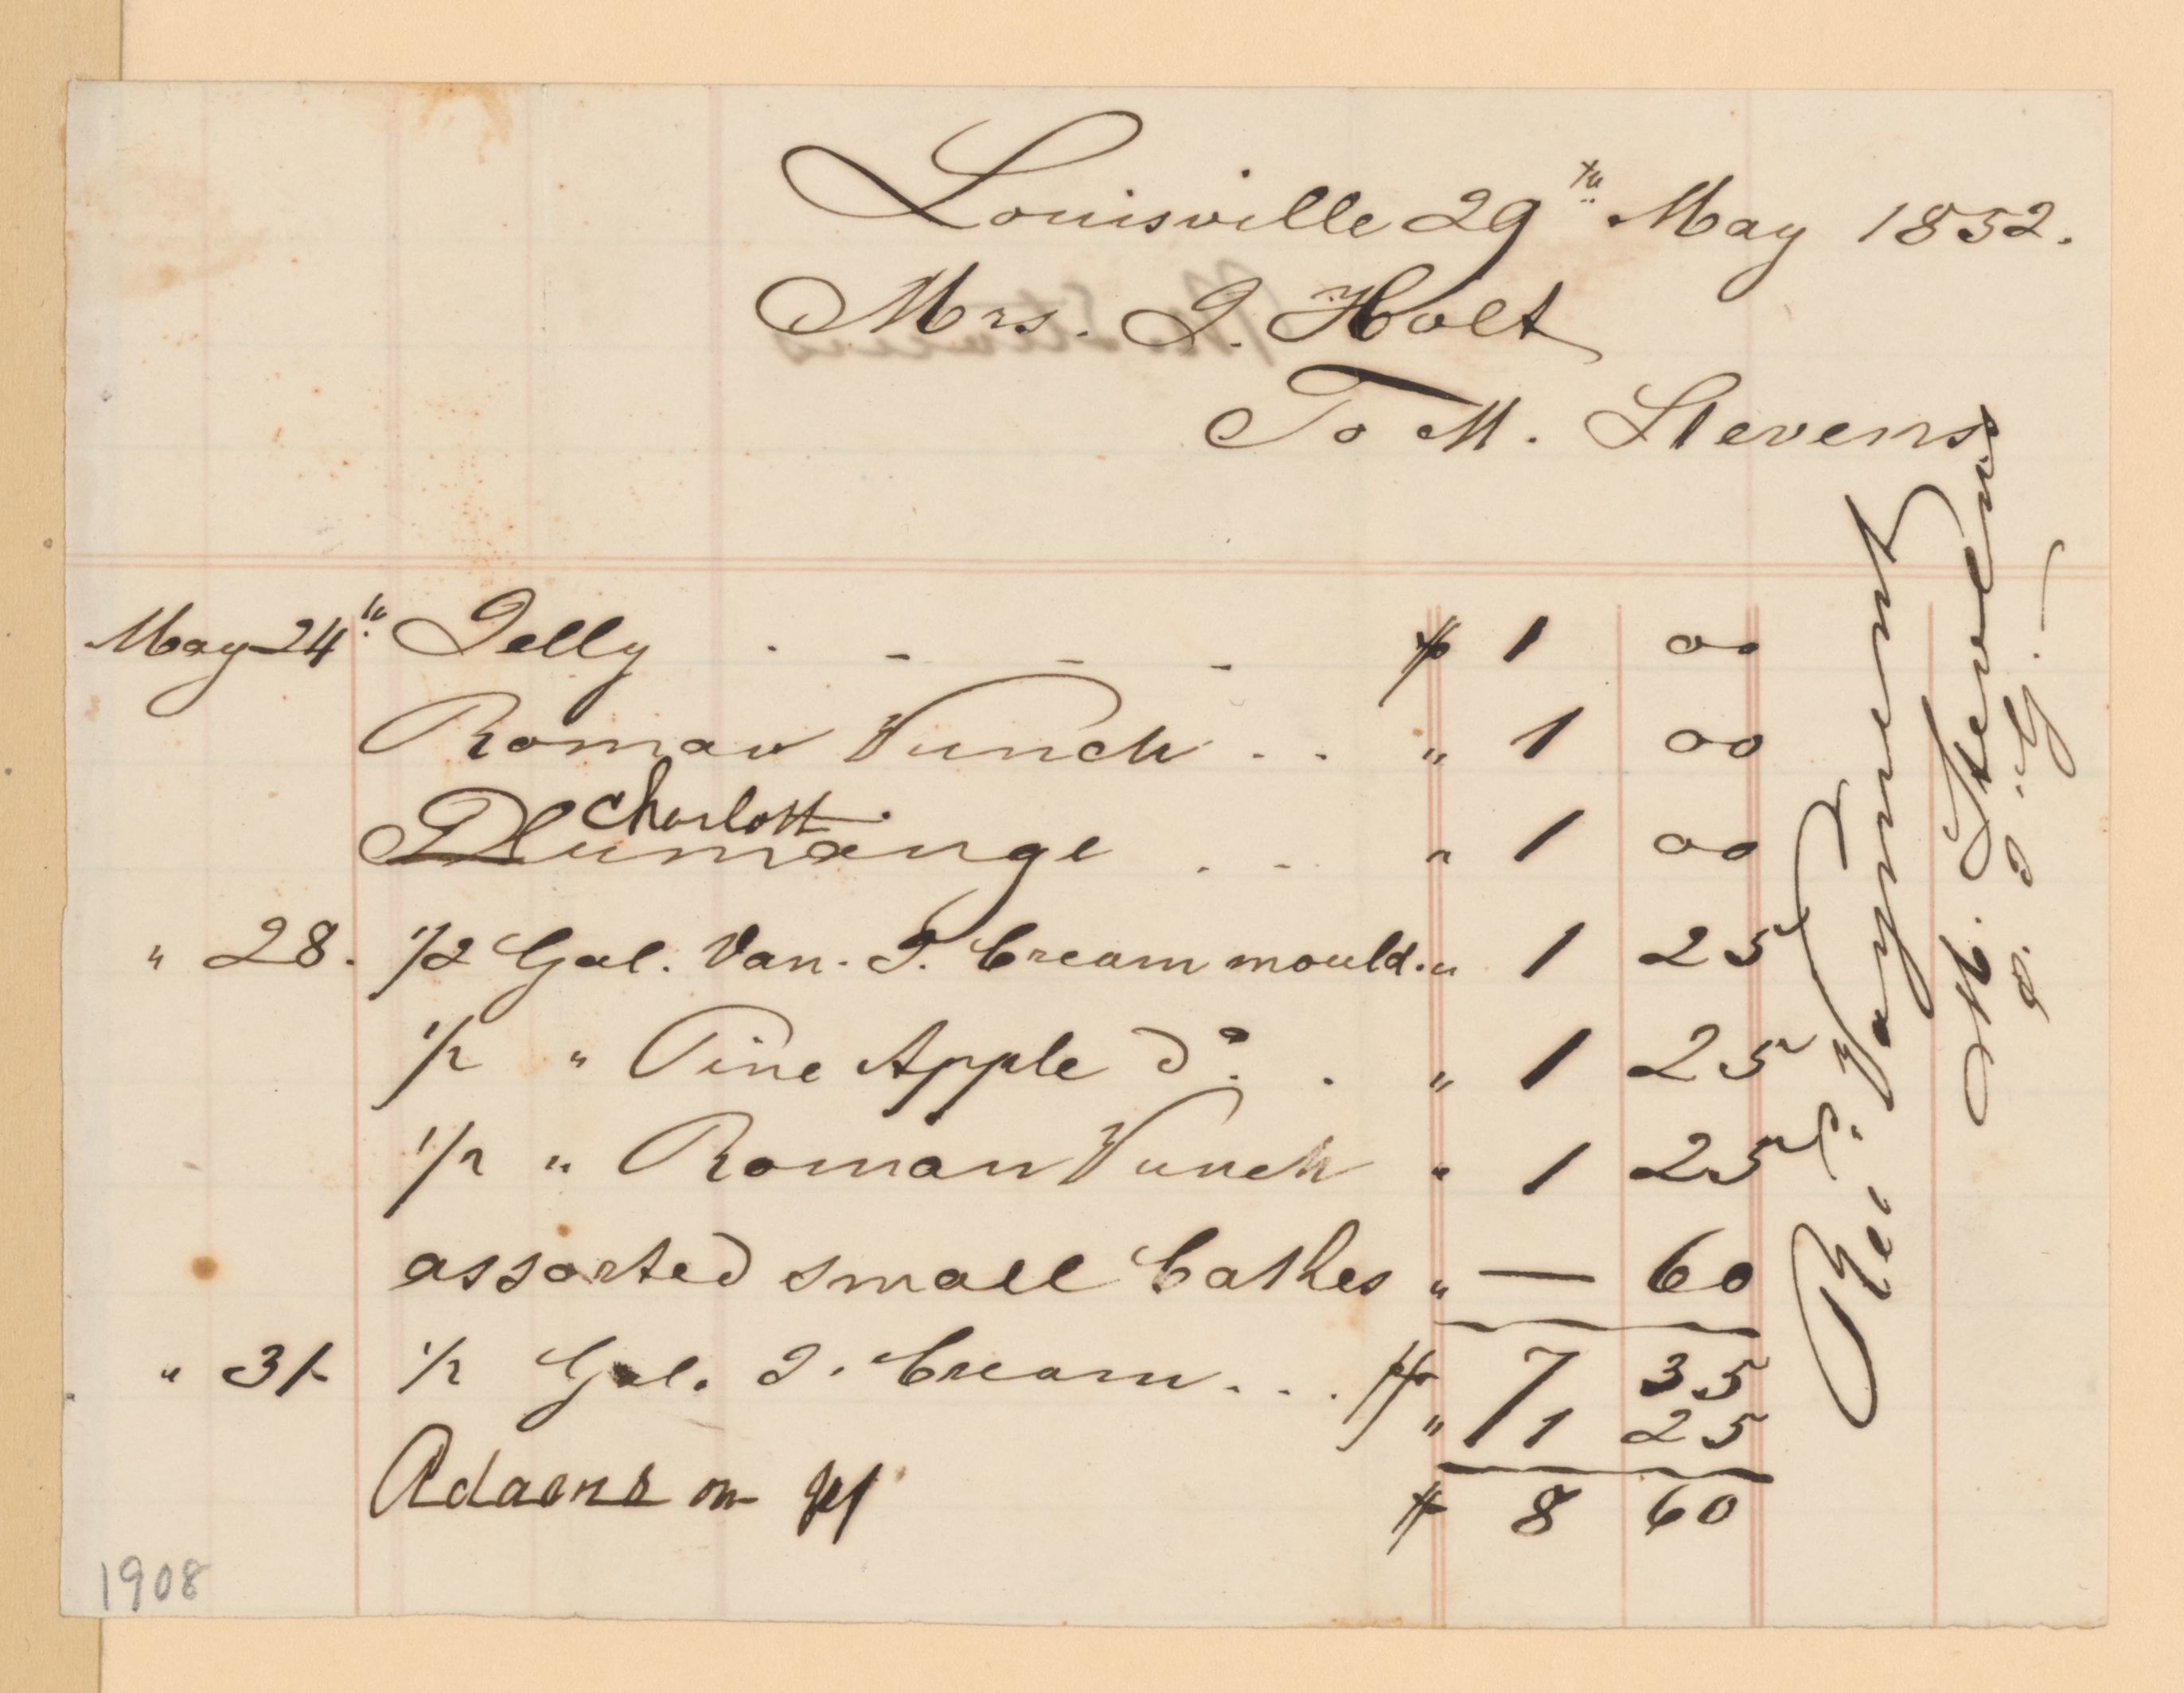 Louisville 29th May 1852.
Mrs. J. Holt
To M. Stevens
May 24th Jelly . - - - $ 1 00
Roman Punch . . " 1 00
Charlott
Blumange . . " 1 00
" 28. 1/2 Gal. Van. I. Cream mould. " 1 25
1/2 " Pine Apple do. . " 1 25
1/2 " Roman Punch " 1 25
assorted small Cakes " — 60
$ 7 35
" 31 1/2 Gal. I. Cream . . . " 1 25
$ 8 60
Adams on
Recd. Payment
M. Stevens
1908